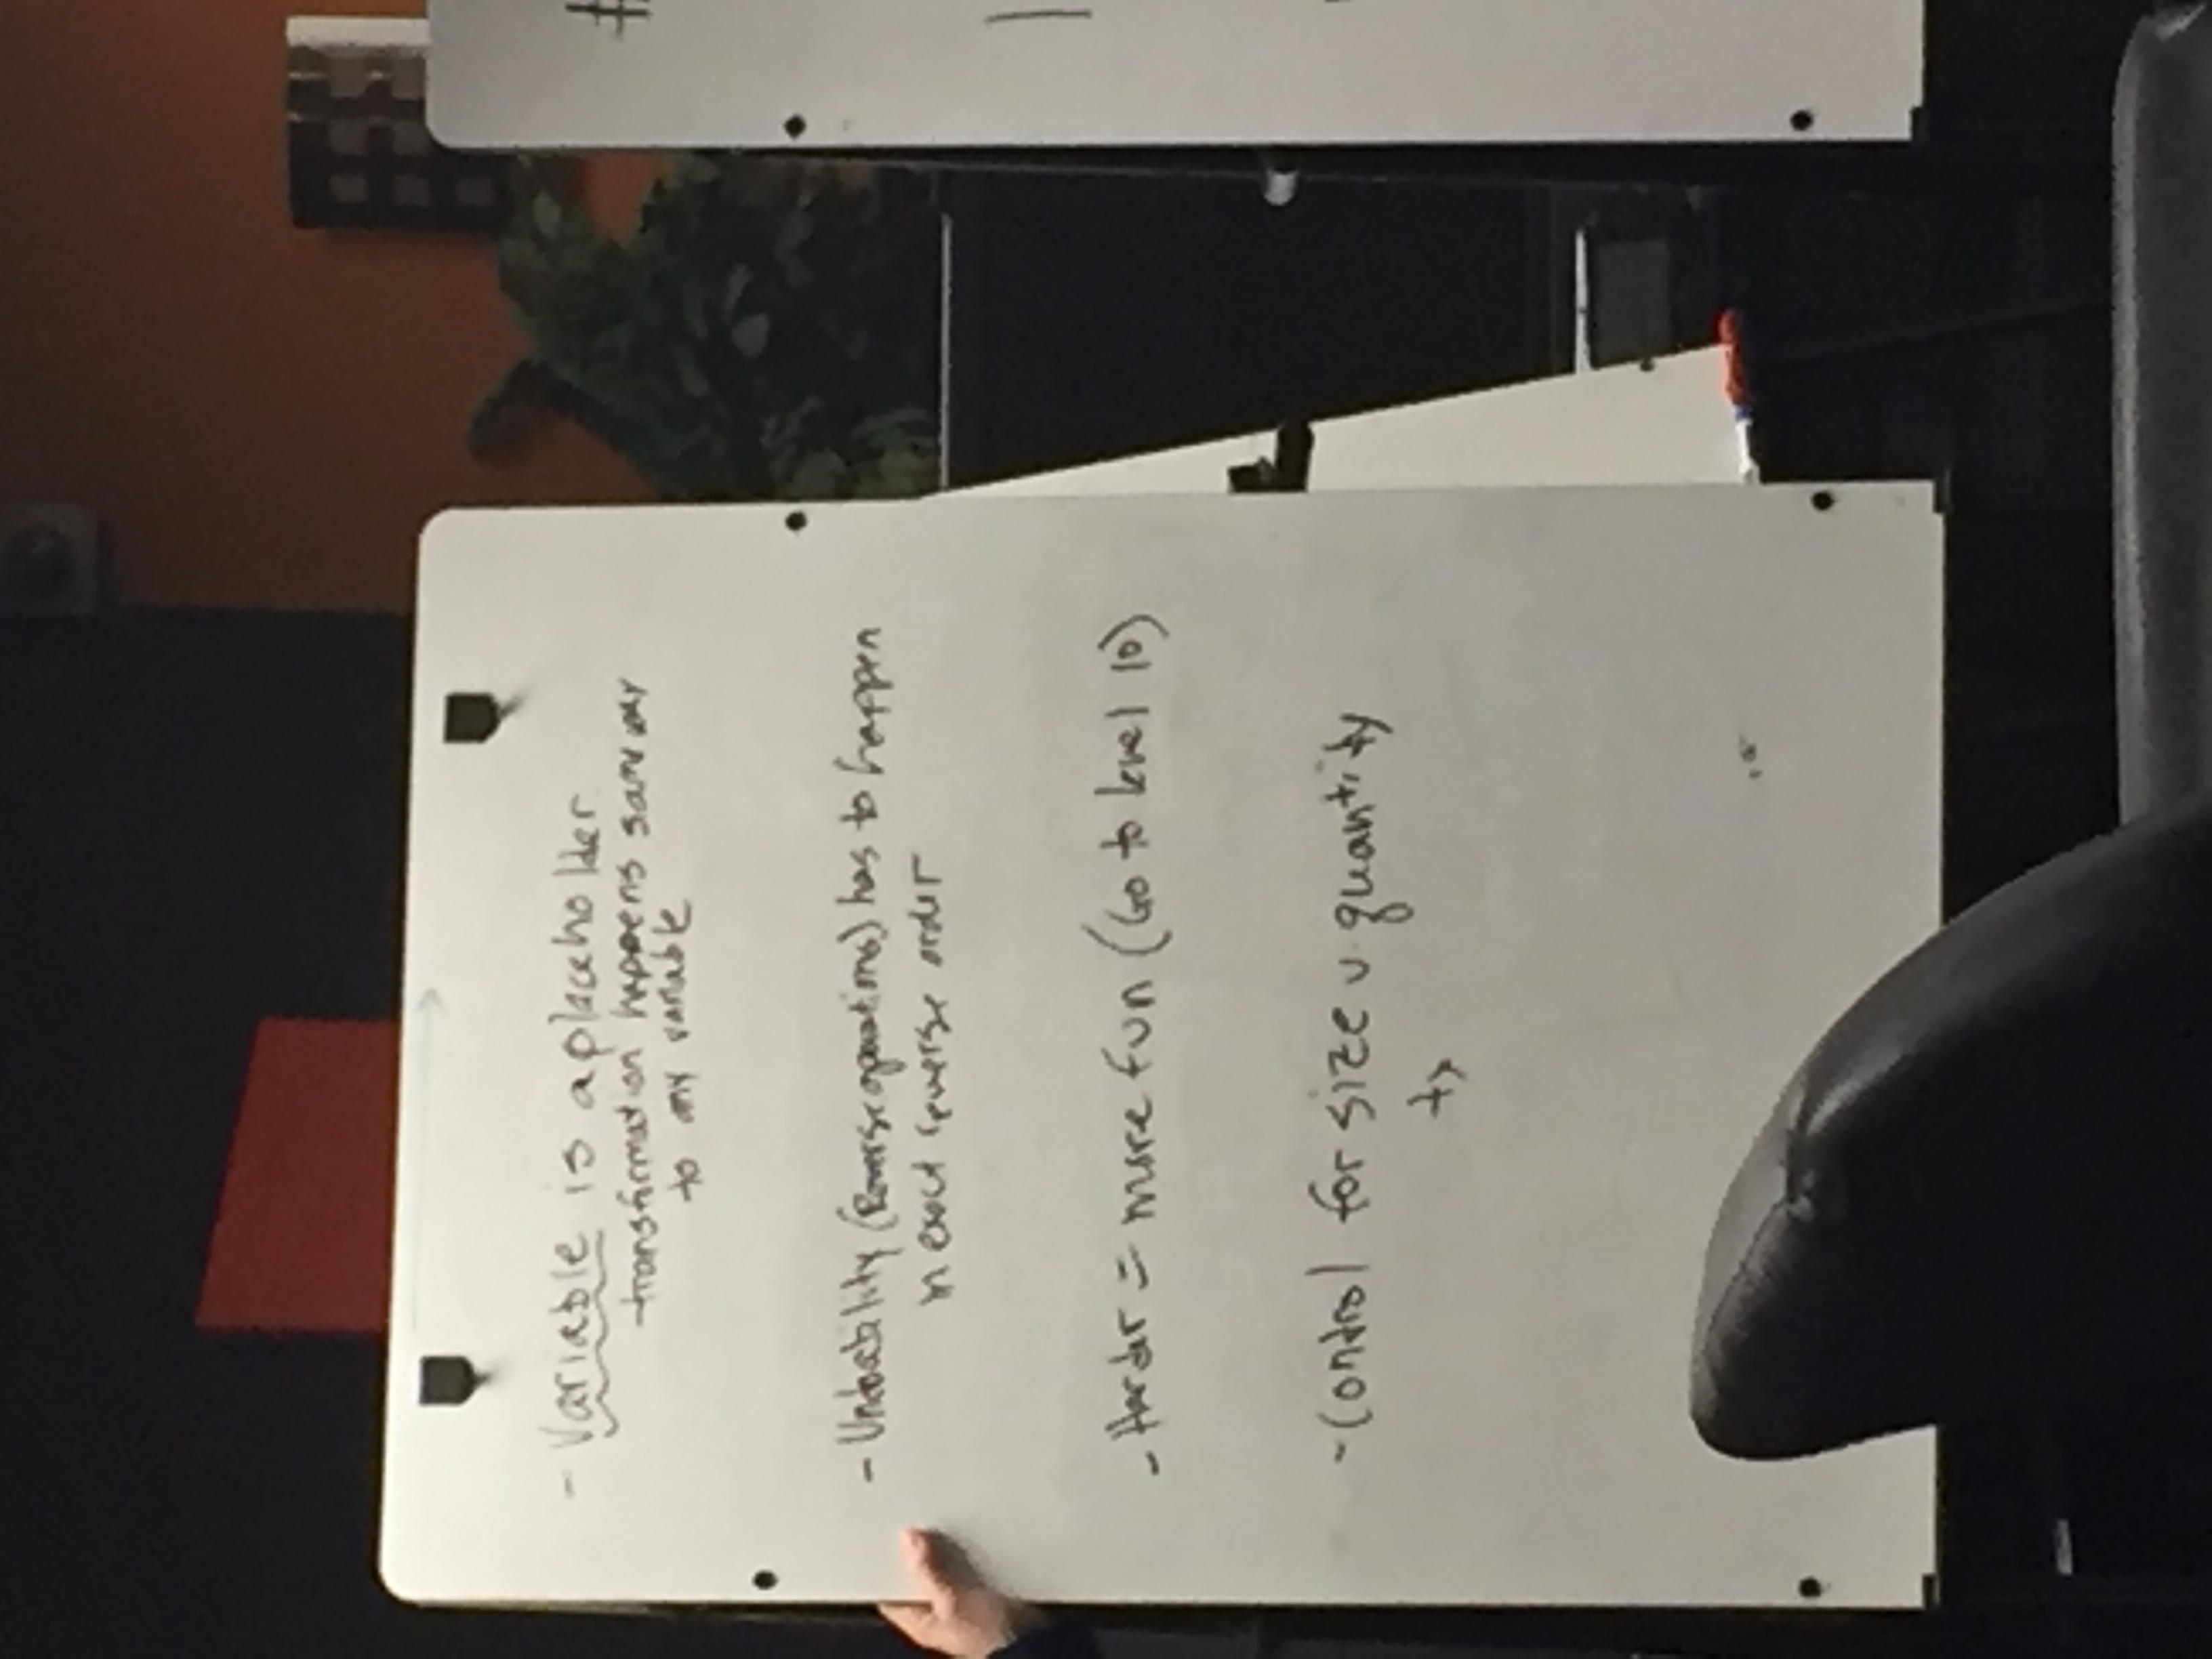 - Variable is a placeholder
transformation happens same way
to any variable
- Undoability (Reverse operations) has to happen
in exact reverse order
- Harder = more fun (Go to level 10)
- Control for size v quantity
#